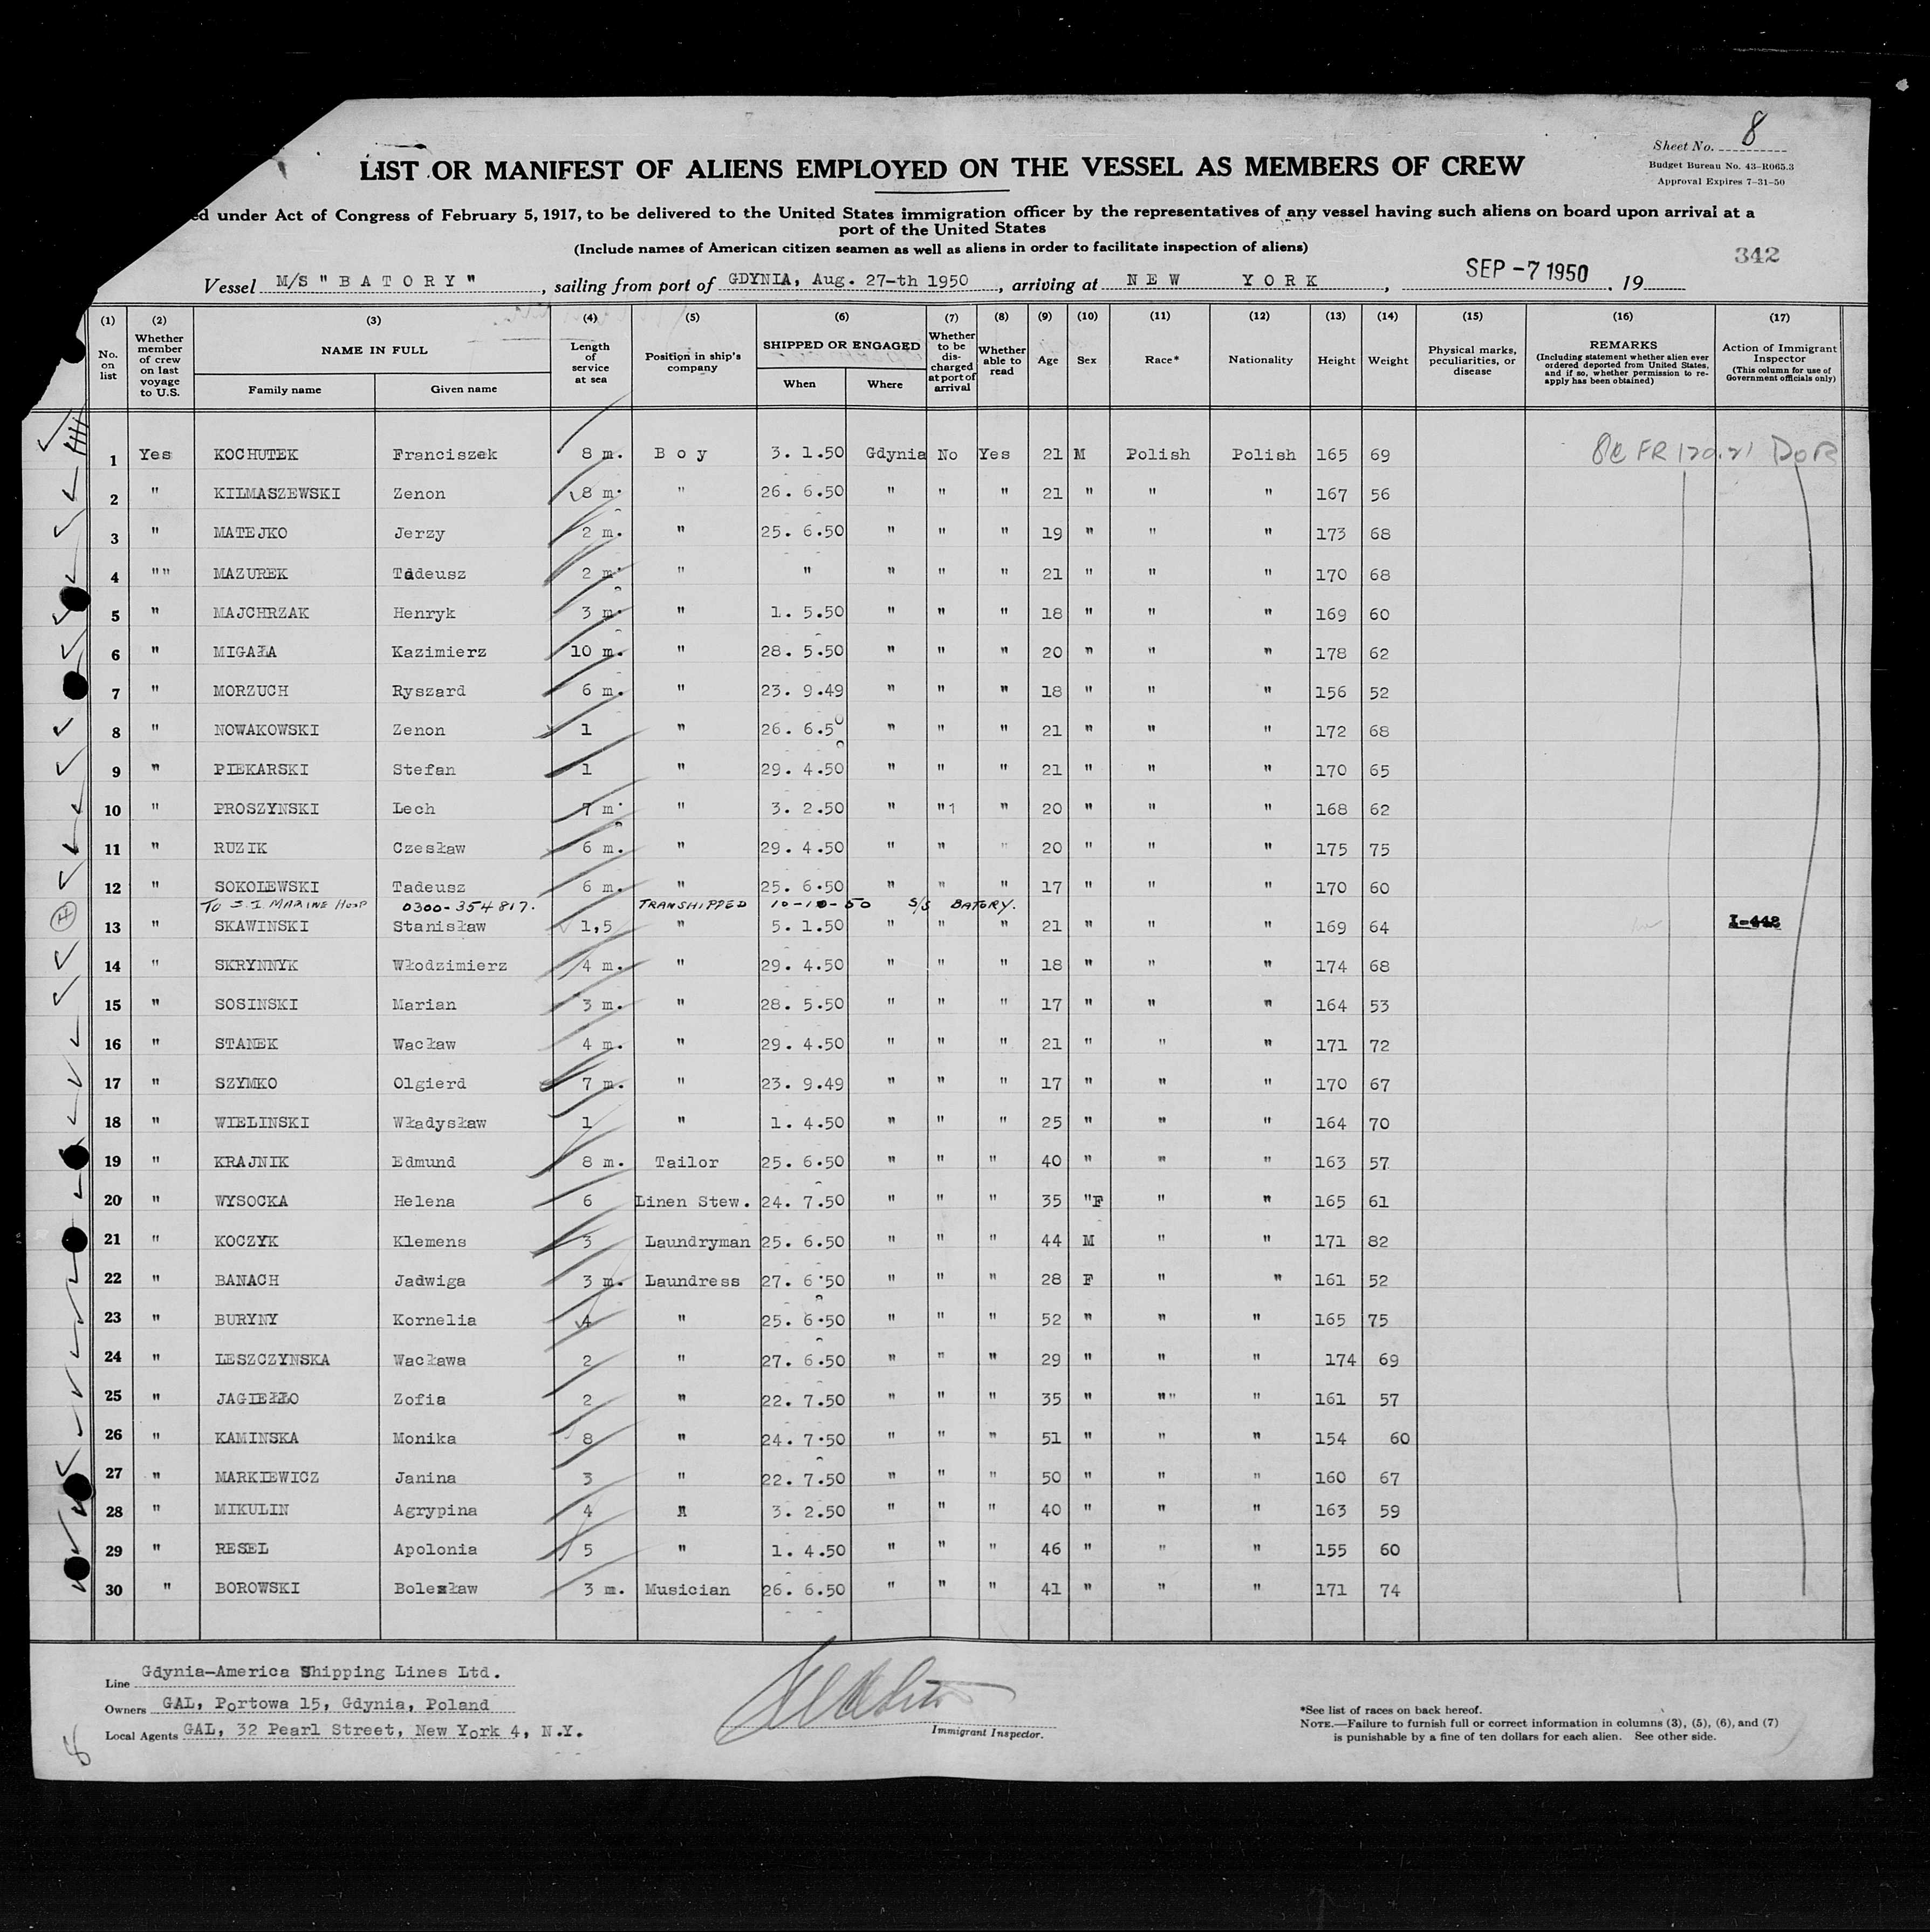 8
Sheet No.
Budget Bureau No. 43-R065.3
Approval Expires 7-31-50
LIST OR MANIFEST OF ALIENS EMPLOYED ON THE VESSEL AS MEMBERS OF CREW
ed under Act of Congress of February 5, 1917, to be delivered to the United States immigration officer by the representatives of any vessel having such aliens on board upon arrival at a
port of the United States
(Include names of American citizen seamen as well as aliens in order to facilitate inspection of aliens)
342
Vessel M/S "BATORY", sailing from port of GDYNIA, Aug. 27-th 1950, arriving at NEW YORK, SEP -7 1950, 19
(1) No. on list (2) Whether member of crew on last voyage to U.S. (3) NAME IN FULL Family name Given name (4) Length of service at sea (5) Position in ship's company (6) SHIPPED OR ENGAGED When Where (7) Whether to be discharged at port of arrival (8) Whether able to read (9) Age (10) Sex (11) Race* (12) Nationality (13) Height (14) Weight (15) Physical marks, peculiarities, or disease (16) REMARKS (Including statement whether alien ever ordered deported from United States, and if so, whether permission to re-apply has been obtained) (17) Action of Immigrant Inspector (This column for use of Government officials only)
1 Yes KOCHUTEK Franciszek 8 m. Boy 3. 1.50 Gdynia No Yes 21 M Polish Polish 165 69
2 " KILMASZEWSKI Zenon 8 m. " 26. 6.50 " " " 21 " " " 167 56
3 " MATEJKO Jerzy 2 m. " 25. 6.50 " " " 19 " " " 173 68
4 "" MAZUREK Tadeusz 2 m. " " " " " 21 " " " 170 68
5 " MAJCHRZAK Henryk 3 m. " 1. 5.50 " " " 18 " " " 169 60
6 " MIGAŁA Kazimierz 10 m. " 28. 5.50 " " " 20 " " " 178 62
7 " MORZUCH Ryszard 6 m. " 23. 9.49 " " " 18 " " " 156 52
8 " NOWAKOWSKI Zenon 1 " 26. 6.50 " " " 21 " " " 172 68
9 " PIEKARSKI Stefan 1 " 29. 4.50 " " " 21 " " " 170 65
10 " PROSZYNSKI Lech 7 m. " 3. 2.50 " "1 " 20 " " " 168 62
11 " RUZIK Czesław 6 m. " 29. 4.50 " " " 20 " " " 175 75
12 " SOKOLEWSKI Tadeusz 6 m. " 25. 6.50 " " " 17 " " " 170 60
TO S.I. MARINE HOSP 0300-354817. TRANSHIPPED 10-10-50 S/S BATORY.
13 " SKAWINSKI Stanisław 1,5 " 5. 1.50 " " " 21 " " " 169 64 I-448
14 " SKRYNNYK Włodzimierz 4 m. " 29. 4.50 " " " 18 " " " 174 68
15 " SOSINSKI Marian 3 m. " 28. 5.50 " " " 17 " " " 164 53
16 " STANEK Wacław 4 m. " 29. 4.50 " " " 21 " " " 171 72
17 " SZYMKO Olgierd 7 m. " 23. 9.49 " " " 17 " " " 170 67
18 " WIELINSKI Władysław 1 " 1. 4.50 " " " 25 " " " 164 70
19 " KRAJNIK Edmund 8 m. Tailor 25. 6.50 " " " 40 " " " 163 57
20 " WYSOCKA Helena 6 Linen Stew. 24. 7.50 " " " 35 "F " " 165 61
21 " KOCZYK Klemens 3 Laundryman 25. 6.50 " " " 44 M " " 171 82
22 " BANACH Jadwiga 3 m. Laundress 27. 6.50 " " " 28 F " " 161 52
23 " BURYNY Kornelia 4 " 25. 6.50 " " " 52 " " " 165 75
24 " LESZCZYNSKA Wacława 2 " 27. 6.50 " " " 29 " " " 174 69
25 " JAGIEŁŁO Zofia 2 " 22. 7.50 " " " 35 " "" " 161 57
26 " KAMINSKA Monika 8 " 24. 7.50 " " " 51 " " " 154 60
27 " MARKIEWICZ Janina 3 " 22. 7.50 " " " 50 " " " 160 67
28 " MIKULIN Agrypina 4 " 3. 2.50 " " " 40 " " " 163 59
29 " RESEL Apolonia 5 " 1. 4.50 " " " 46 " " " 155 60
30 " BOROWSKI Bolesław 3 m. Musician 26. 6.50 " " " 41 " " " 171 74
Line Gdynia-America Shipping Lines Ltd.
Owners GAL, Portowa 15, Gdynia, Poland
Local Agents GAL, 32 Pearl Street, New York 4, N.Y.
Immigrant Inspector.
*See list of races on back hereof.
NOTE.—Failure to furnish full or correct information in columns (3), (5), (6), and (7)
is punishable by a fine of ten dollars for each alien. See other side.
8